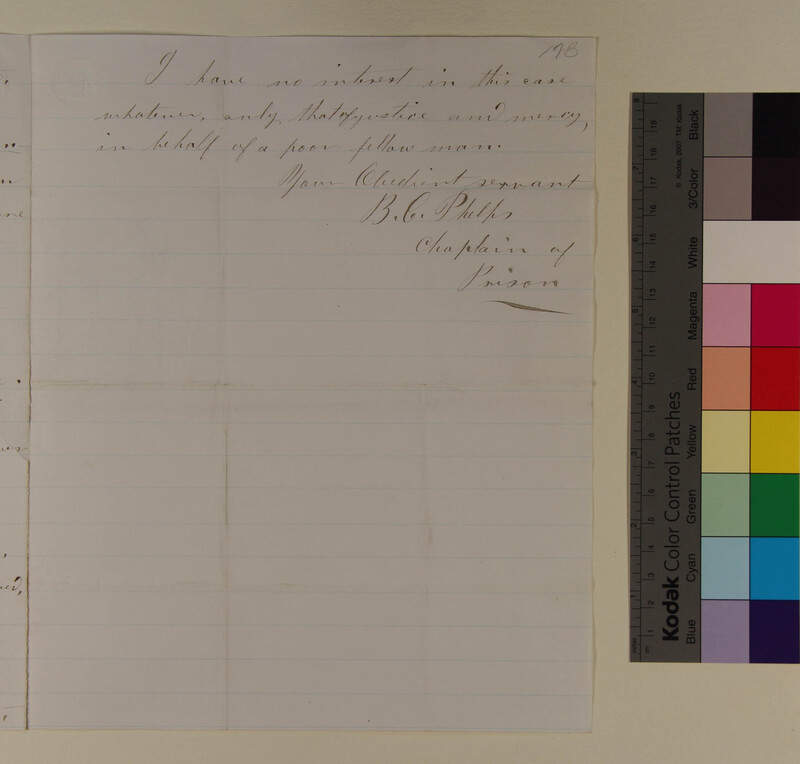 178
I have no interest in this case
whatever, only, that of justice and mercy,
in behalf of a poor fellow man.
Your Obedient servant
B. C. Phelps
Chaplain of
Prison
Kodak Color Control Patches
© Kodak, 2007 TM: Kodak
Blue Cyan Green Yellow Red Magenta White 3/Color Black
cm 1 2 3 4 5 6 7 8 9 10 11 12 13 14 15 16 17 18 19
inches 1 2 3 4 5 6 7 8